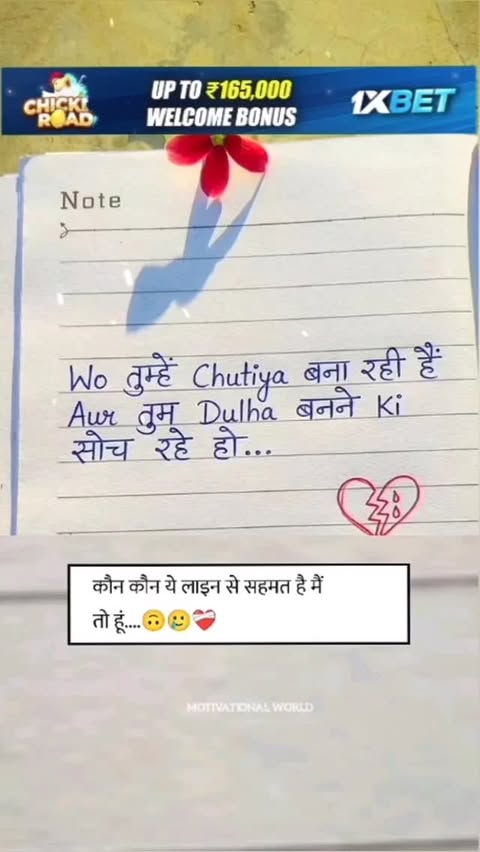 CHICKEN ROAD
UP TO ₹165,000
WELCOME BONUS
1XBET
Note
Wo तुम्हें Chutiya बना रही हैं
Aur तुम Dulha बनने Ki
सोच रहे हो...
कौन कौन ये लाइन से सहमत है मैं
तो हूं....🙃🥲❤️‍🩹
MOTIVATIONAL WORLD